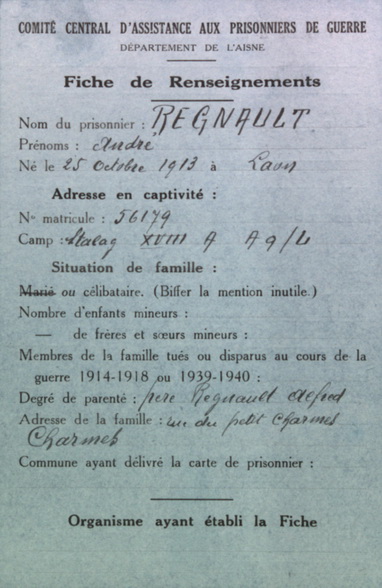 COMITÉ CENTRAL D'ASSISTANCE AUX PRISONNIERS DE GUERRE
DÉPARTEMENT DE L'AISNE
Fiche de Renseignements
Nom du prisonnier : REGNAULT
Prénoms : André
Né le 25 Octobre 1913 à Laon
Adresse en captivité :
N° matricule : 56179
Camp : Stalag XVIII A A9/L
Situation de famille :
Marié ou célibataire. (Biffer la mention inutile.)
Nombre d'enfants mineurs :
— de frères et sœurs mineurs :
Membres de la famille tués ou disparus au cours de la
guerre 1914-1918 ou 1939-1940 :
Degré de parenté : père Regnault
Adresse de la famille : rue du petit Charmes
Charmes
Commune ayant délivré la carte de prisonnier :
Organisme ayant établi la Fiche